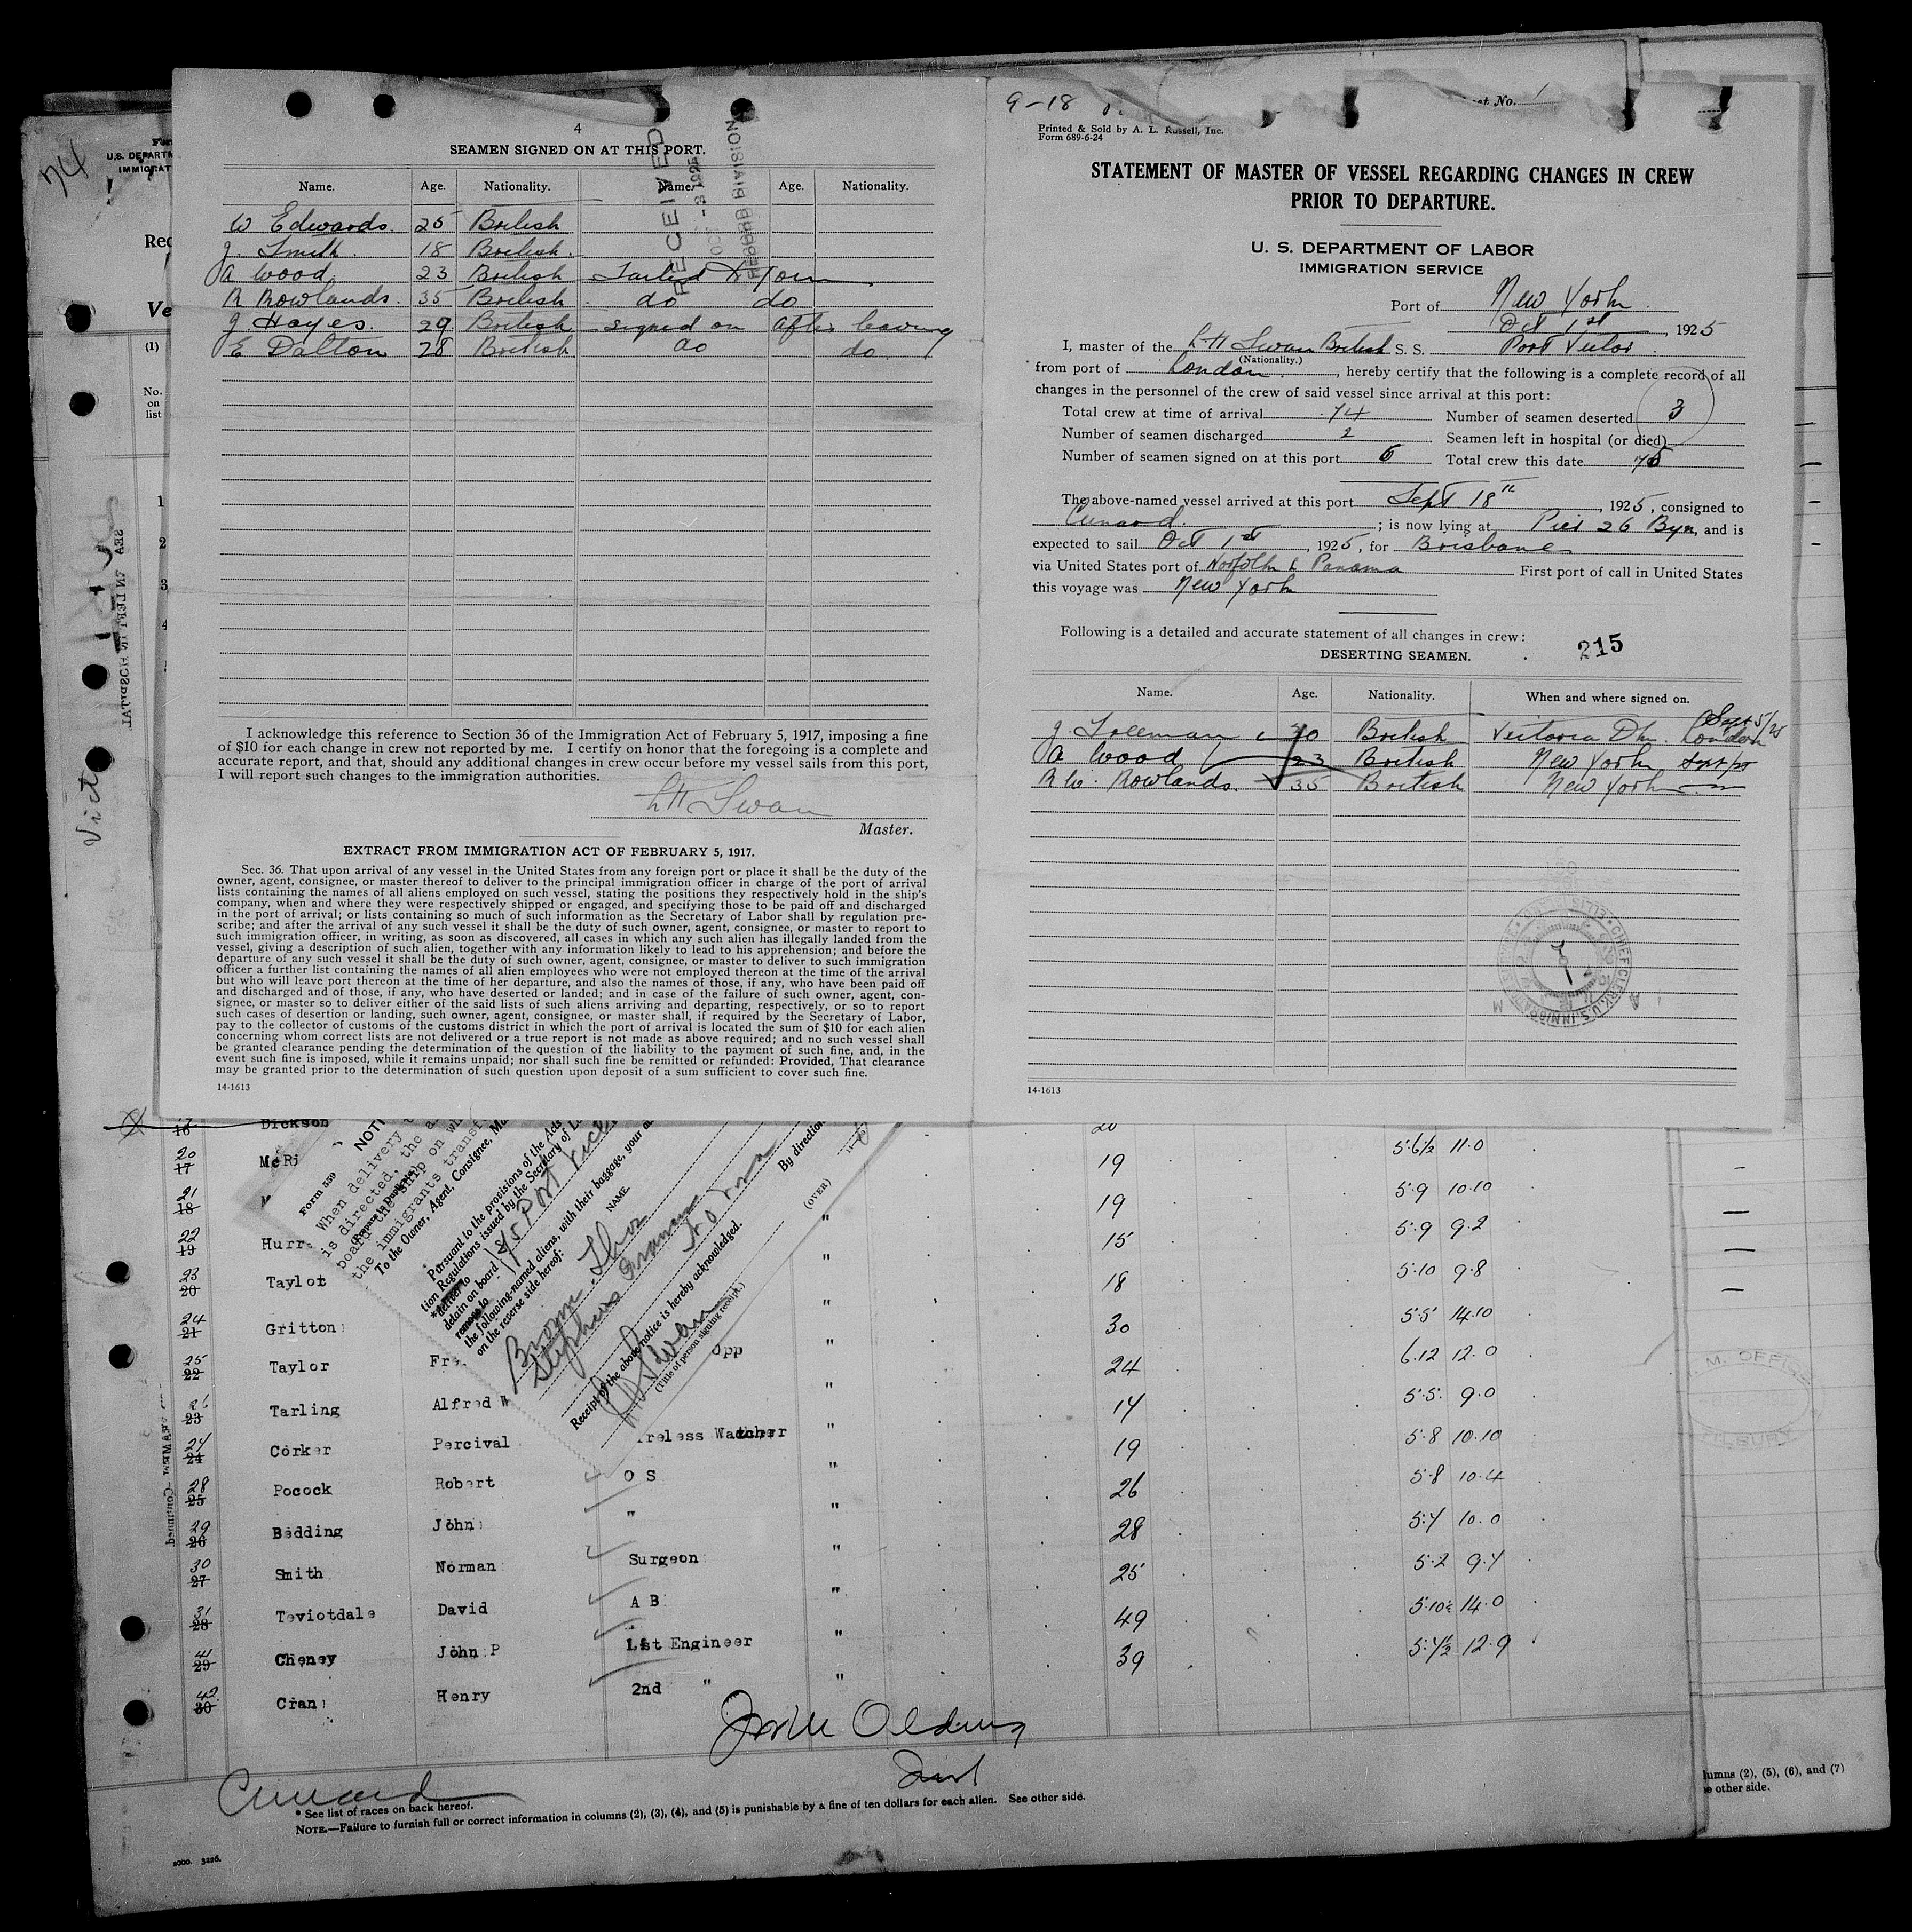 4
SEAMEN SIGNED ON AT THIS PORT.
Name. Age. Nationality. Name. Age. Nationality.
W Edwards. 25 British
J. Smith. 18 British.
A Wood. 23 British
R Rowlands. 35 British do do
J. Hayes. 29 British signed on after leaving
E Dalton 28 British do do
RECEIVED
RECORD DIVISION
I acknowledge this reference to Section 36 of the Immigration Act of February 5, 1917, imposing a fine
of $10 for each change in crew not reported by me. I certify on honor that the foregoing is a complete and
accurate report, and that, should any additional changes in crew occur before my vessel sails from this port,
I will report such changes to the immigration authorities.
Swan
Master.
EXTRACT FROM IMMIGRATION ACT OF FEBRUARY 5, 1917.
Sec. 36. That upon arrival of any vessel in the United States from any foreign port or place it shall be the duty of the
owner, agent, consignee, or master thereof to deliver to the principal immigration officer in charge of the port of arrival
lists containing the names of all aliens employed on such vessel, stating the positions they respectively hold in the ship's
company, when and where they were respectively shipped or engaged, and specifying those to be paid off and discharged
in the port of arrival; or lists containing so much of such information as the Secretary of Labor shall by regulation pre-
scribe; and after the arrival of any such vessel it shall be the duty of such owner, agent, consignee, or master to report to
such immigration officer, in writing, as soon as discovered, all cases in which any such alien has illegally landed from the
vessel, giving a description of such alien, together with any information likely to lead to his apprehension; and before the
departure of any such vessel it shall be the duty of such owner, agent, consignee, or master to deliver to such immigration
officer a further list containing the names of all alien employees who were not employed thereon at the time of the arrival
but who will leave port thereon at the time of her departure, and also the names of those, if any, who have been paid off
and discharged and of those, if any, who have deserted or landed; and in case of the failure of such owner, agent, con-
signee, or master so to deliver either of the said lists of such aliens arriving and departing, respectively, or so to report
such cases of desertion or landing, such owner, agent, consignee, or master shall, if required by the Secretary of Labor,
pay to the collector of customs of the customs district in which the port of arrival is located the sum of $10 for each alien
concerning whom correct lists are not delivered or a true report is not made as above required; and no such vessel shall
be granted clearance pending the determination of the question of the liability to the payment of such fine, and, in the
event such fine is imposed, while it remains unpaid; nor shall such fine be remitted or refunded: Provided, That clearance
may be granted prior to the determination of such question upon deposit of a sum sufficient to cover such fine.
14-1613
9-18
No. 1
Printed & Sold by A. L. Russell, Inc.
Form 689-6-24
STATEMENT OF MASTER OF VESSEL REGARDING CHANGES IN CREW
PRIOR TO DEPARTURE.
U. S. DEPARTMENT OF LABOR
IMMIGRATION SERVICE
Port of New York
Oct 1st, 1925
I, master of the Swan British S. S. Port
(Nationality.)
from port of London, hereby certify that the following is a complete record of all
changes in the personnel of the crew of said vessel since arrival at this port:
Total crew at time of arrival 74 Number of seamen deserted 3
Number of seamen discharged 2 Seamen left in hospital (or died)
Number of seamen signed on at this port 6 Total crew this date 75
The above-named vessel arrived at this port Sept 18th, 1925, consigned to
Cunard.; is now lying at Pier 26 Byn, and is
expected to sail Oct 1st, 1925, for Brisbane
via United States port of Norfolk & Panama First port of call in United States
this voyage was New York
Following is a detailed and accurate statement of all changes in crew:
DESERTING SEAMEN. 215
Name. Age. Nationality. When and where signed on.
J 40 British Victoria Dk. London Sept 5/25
A Wood 23 British New York Sept
R W. Rowlands. 35 British New York
14-1613
74
U.S. DEPARTM
IMMIGRAT
(1)
No.
on
list
Vict
18 Dickson 20
20 17 McRi 19 5.6½ 11.0
21 18 19 5.9 10.10
22 19 Hurr 15 5.9 9.2
23 20 Taylor 18 5.10 9.8
24 21 Gritton 30 5.5 14.10
25 22 Taylor Fr 24 6.12 12.0
26 23 Tarling Alfred W 14 5.5. 9.0
24 Corker Percival reless Watcher 19 5.8 10.10
28 25 Pocock Robert O S 26 5.8 10.4
29 26 Bedding John " 28 5.7 10.0
30 27 Smith Norman Surgeon 25 5.2 9.7
31 28 Teviotdale David A B 49 5.10½ 14.0
41 29 Cheney John P 1st Engineer 39 12.9
42 30 Cran Henry 2nd "
Form 539
NOTI
When delivery
is directed, the a
board the ship on wh
the immigrants transf
(Prepare in Duplicate)
To the Owner, Agent, Consignee, Ma
Pursuant to the provisions of the Acts
tion Regulations issued by the Secretary of L
deliver to
detain on board S/S Port Vict
remove to
the following-named aliens, with their baggage, your a
on the reverse side hereof:
NAME.
Stephens
By direction
Receipt of the above notice is hereby acknowledged.
Swan
(Title of person signing receipt.)
(OVER)
Cunard
* See list of races on back hereof.
NOTE.—Failure to furnish full or correct information in columns (2), (3), (4), and (5) is punishable by a fine of ten dollars for each alien. See other side.
2000. 3226.
lumns (2), (5), (6), and (7)
e other side.
M. OFFICE
TILBURY